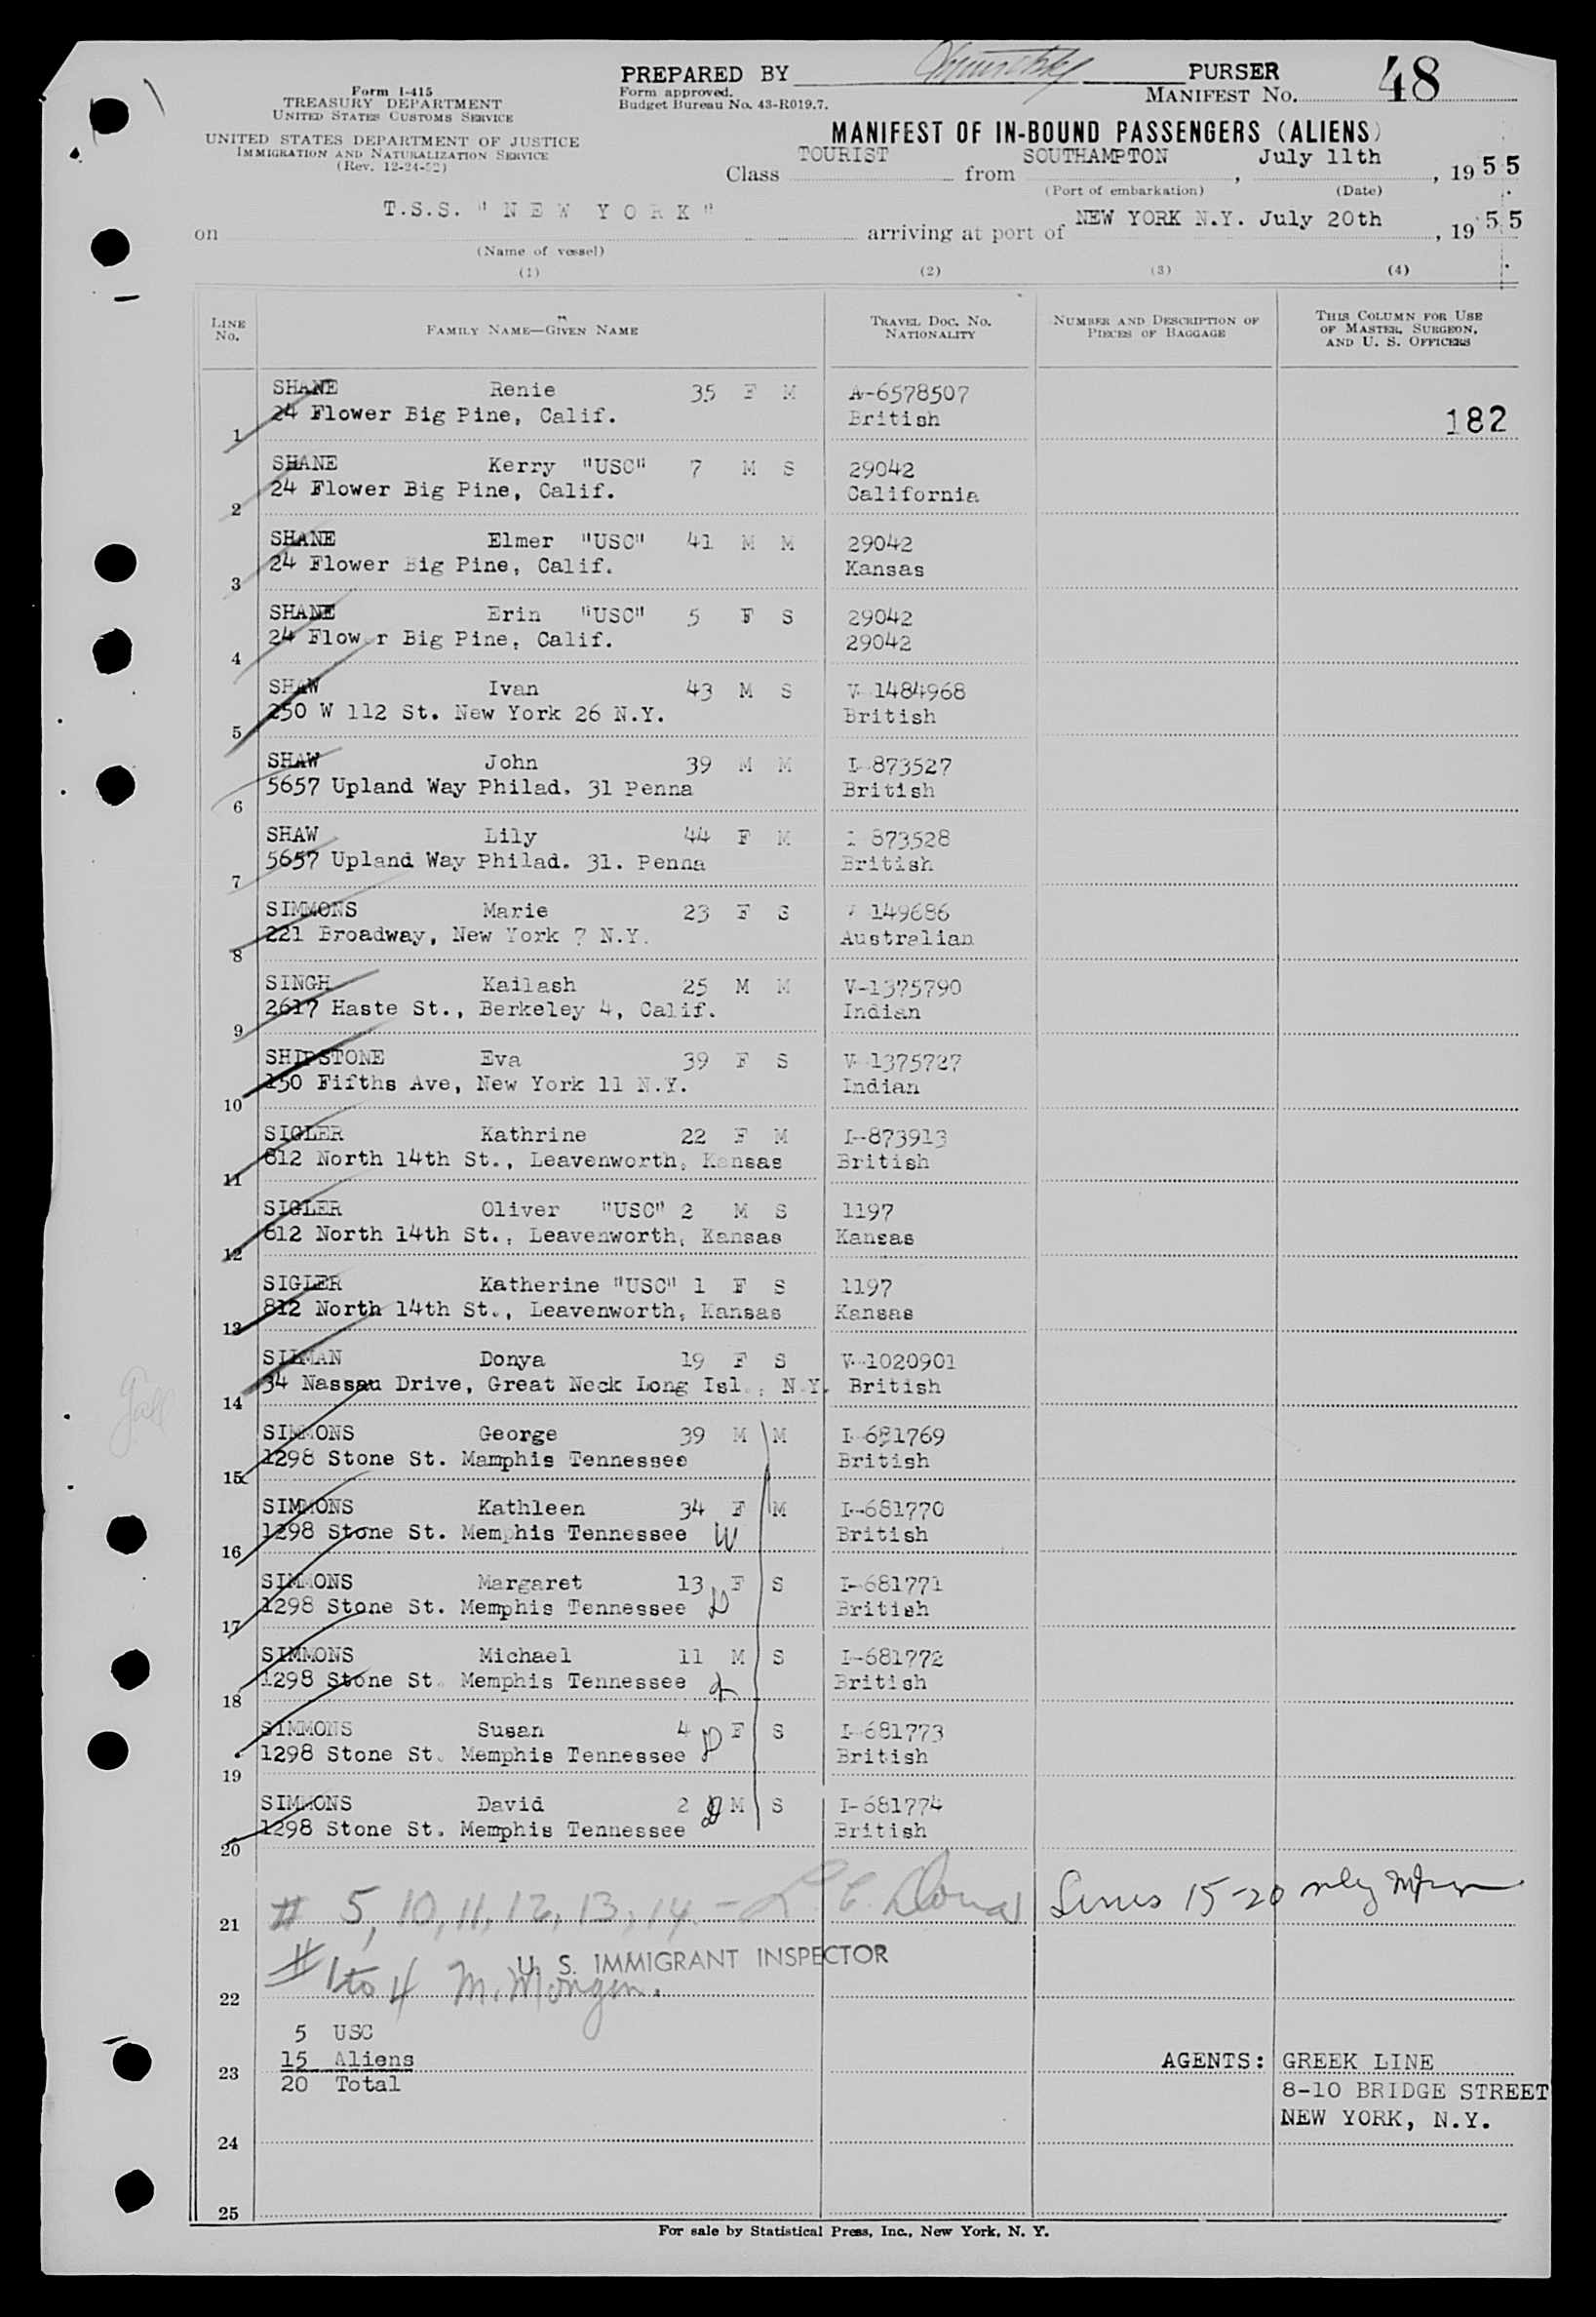 PREPARED BY PURSER
48
Form I-415
TREASURY DEPARTMENT
UNITED STATES CUSTOMS SERVICE
Form approved.
Budget Bureau No. 43-R019.7.
MANIFEST NO.
UNITED STATES DEPARTMENT OF JUSTICE
IMMIGRATION AND NATURALIZATION SERVICE
(Rev. 12-24-52)
MANIFEST OF IN-BOUND PASSENGERS (ALIENS)
Class TOURIST from SOUTHAMPTON, July 11th, 1955
(Port of embarkation) (Date)
on T.S.S. "NEW YORK" arriving at port of NEW YORK N.Y. July 20th, 1955
(Name of vessel)
(1) (2) (3) (4)
LINE No. FAMILY NAME—GIVEN NAME TRAVEL DOC. NO. NATIONALITY NUMBER AND DESCRIPTION OF PIECES OF BAGGAGE THIS COLUMN FOR USE OF MASTER, SURGEON, AND U. S. OFFICERS
SHANE Renie 35 F M A-6578507
1 24 Flower Big Pine, Calif. British 182
SHANE Kerry "USC" 7 M S 29042
2 24 Flower Big Pine, Calif. California
SHANE Elmer "USC" 41 M M 29042
3 24 Flower Big Pine, Calif. Kansas
SHANE Erin "USC" 5 F S 29042
4 24 Flower Big Pine, Calif. 29042
SHAW Ivan 43 M S V-1484968
5 250 W 112 St. New York 26 N.Y. British
SHAW John 39 M M I-873527
6 5657 Upland Way Philad. 31 Penna British
SHAW Lily 44 F M I 873528
7 5657 Upland Way Philad. 31. Penna British
SIMMONS Marie 23 F S V 149686
8 221 Broadway, New York 7 N.Y. Australian
SINGH Kailash 25 M M V-1375790
9 2617 Haste St., Berkeley 4, Calif. Indian
SHIPSTONE Eva 39 F S V-1375727
10 150 Fifths Ave, New York 11 N.Y. Indian
SIGLER Kathrine 22 F M I-873913
11 812 North 14th St., Leavenworth, Kansas British
SIGLER Oliver "USC" 2 M S 1197
12 812 North 14th St., Leavenworth, Kansas Kansas
SIGLER Katherine "USC" 1 F S 1197
13 812 North 14th St., Leavenworth, Kansas Kansas
SILMAN Donya 19 F S V-1020901
14 34 Nassau Drive, Great Neck Long Isl., N.Y. British
SIMMONS George 39 M M I-681769
15 1298 Stone St. Mamphis Tennessee British
SIMMONS Kathleen 34 F M I-681770
16 1298 Stone St. Memphis Tennessee W British
SIMMONS Margaret 13 F S I-681771
17 1298 Stone St. Memphis Tennessee D British
SIMMONS Michael 11 M S I-681772
18 1298 Stone St. Memphis Tennessee British
SIMMONS Susan 4 F S I-681773
19 1298 Stone St. Memphis Tennessee D British
SIMMONS David 2 M S I-681774
20 1298 Stone St. Memphis Tennessee British
21 # 5, 10, 11, 12, 13, 14. - L. C. Lines 15-20 only
U. S. IMMIGRANT INSPECTOR
22 # 1 to 4 M.
5 USC
23 15 Aliens AGENTS: GREEK LINE
20 Total 8-10 BRIDGE STREET
NEW YORK, N.Y.
24
25
For sale by Statistical Press, Inc., New York, N. Y.